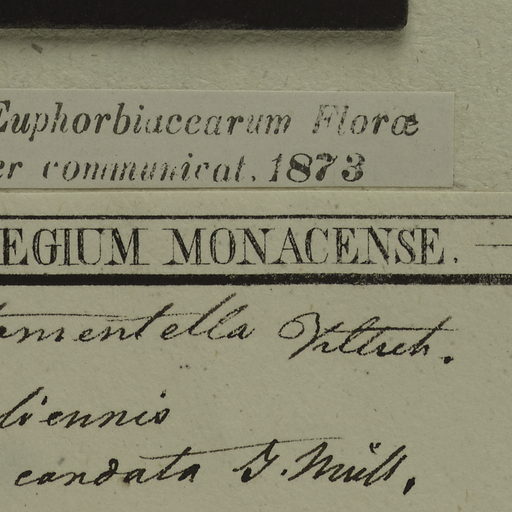 Euphorbiacearum Floræ
er communicat. 1873
EGIUM MONACENSE.
omentella
diennis
caudata J. Müll.